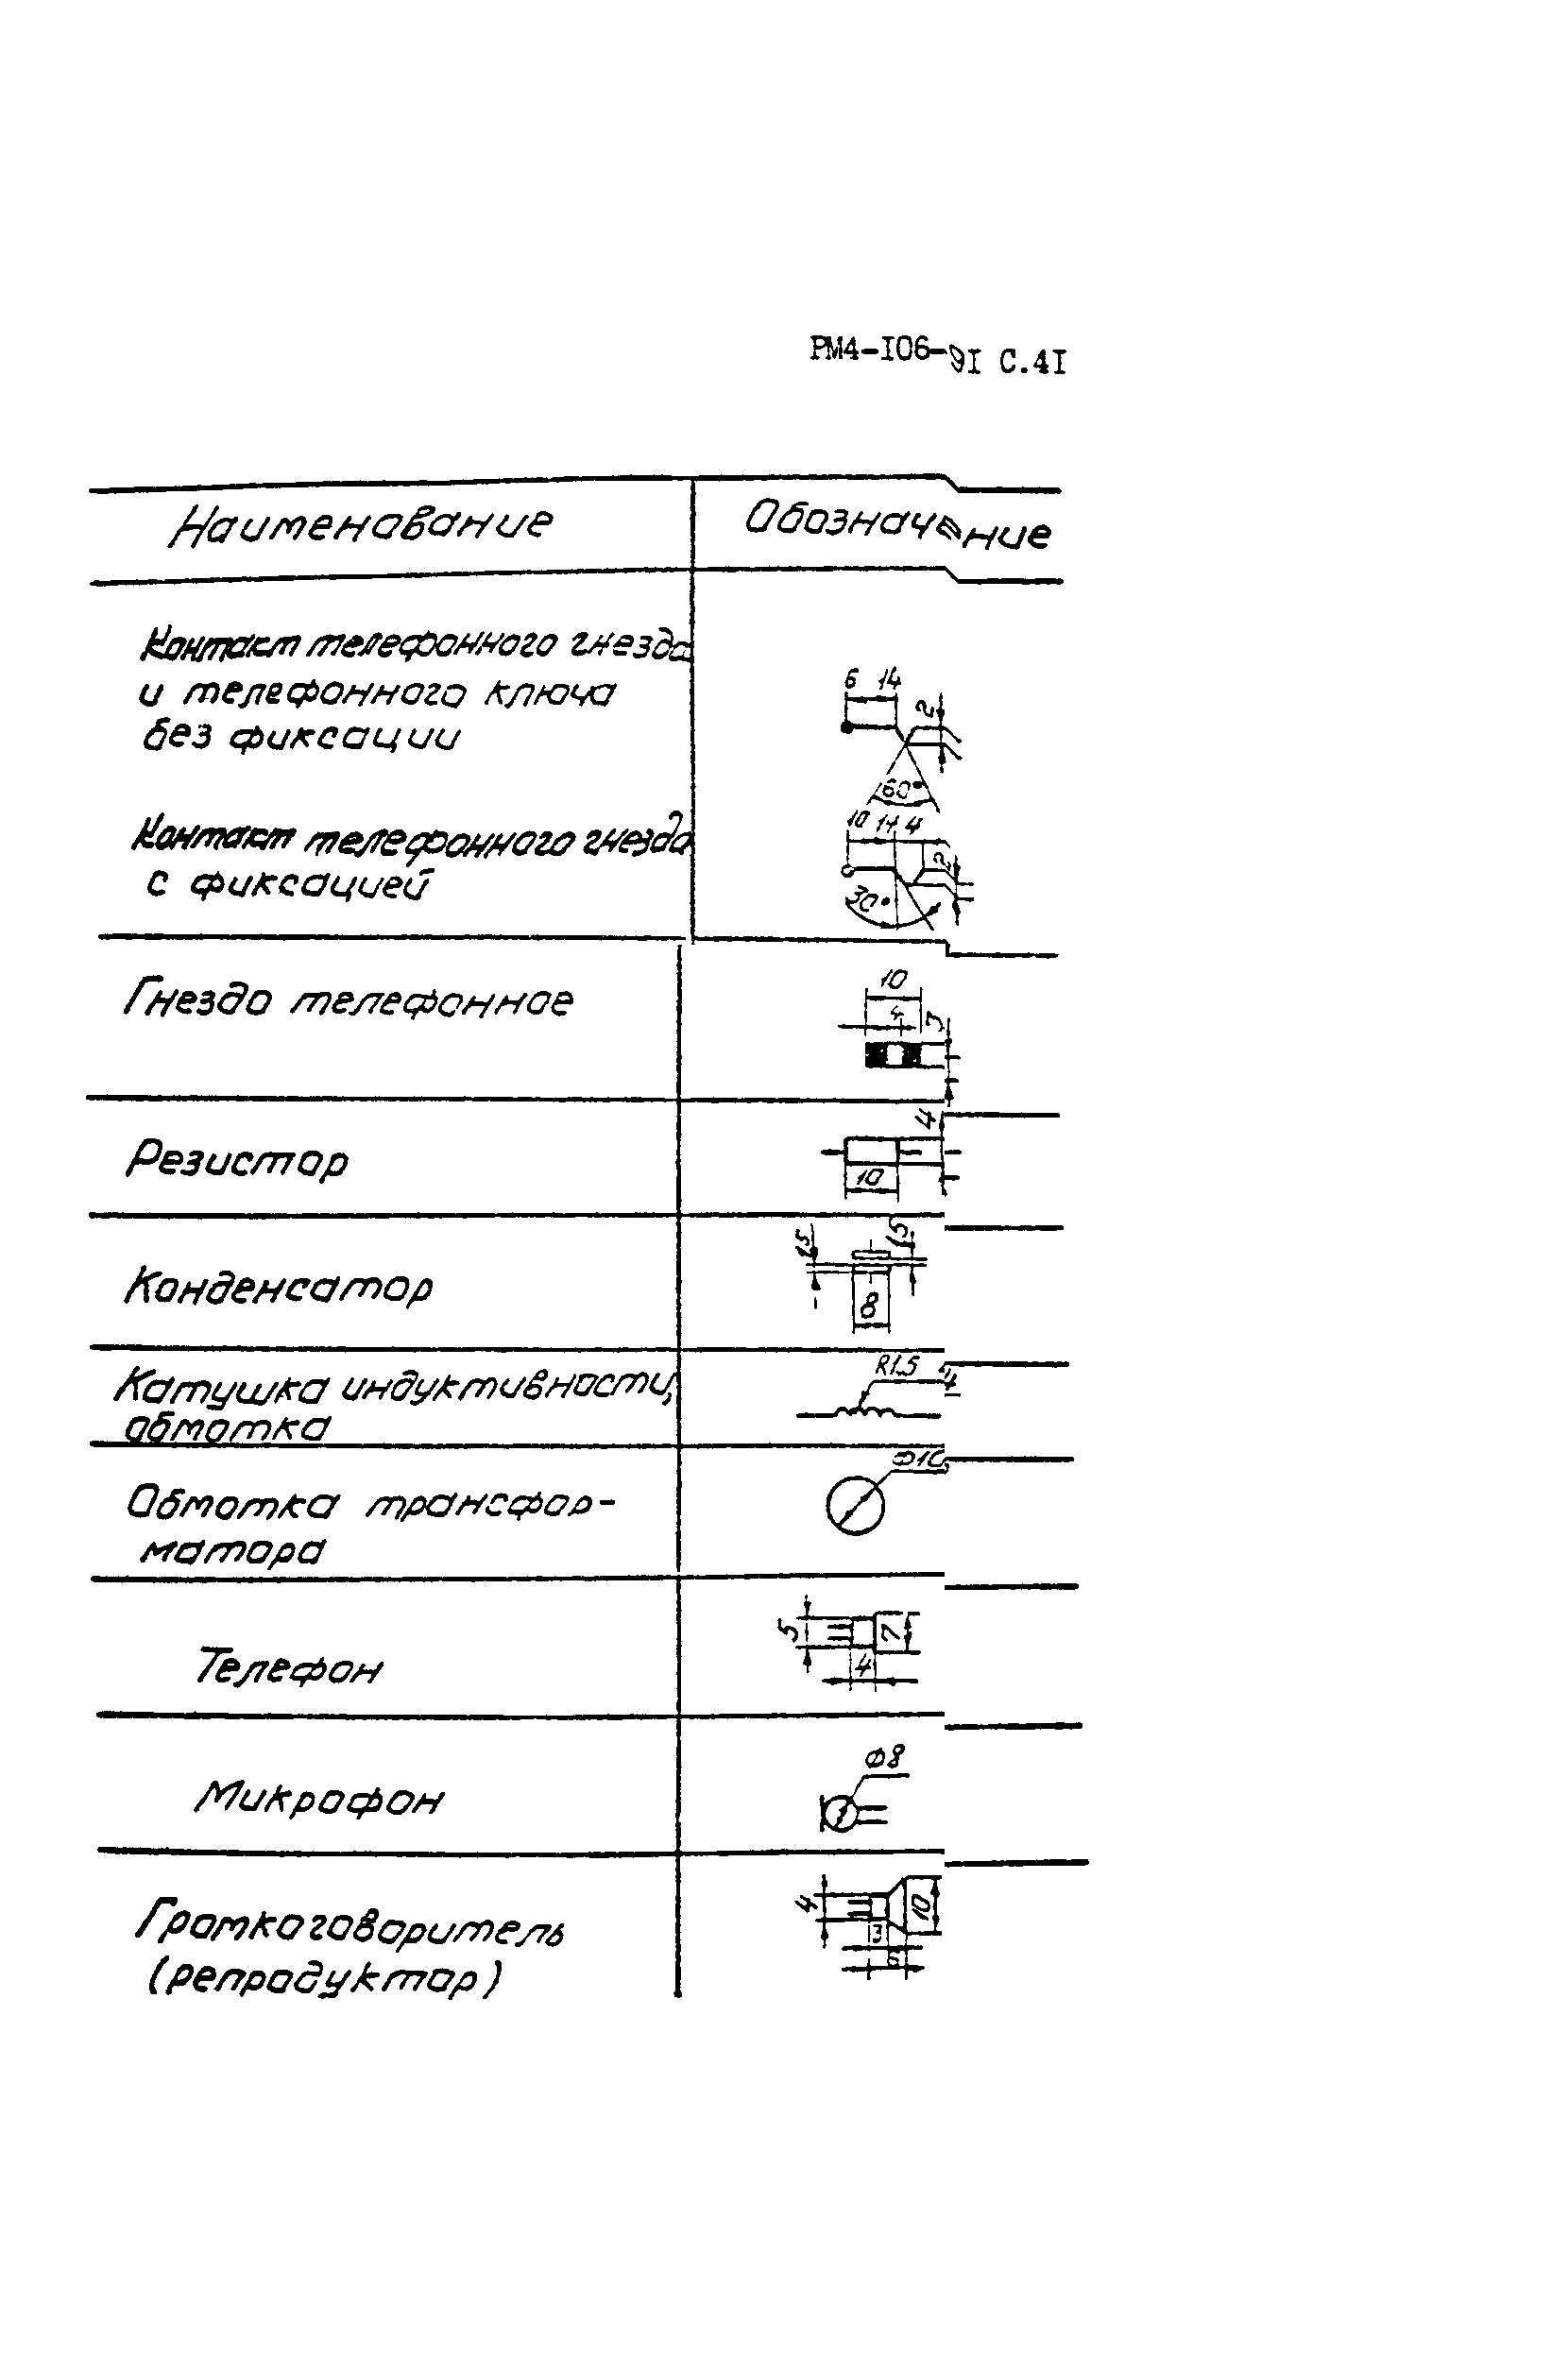 РМ4-106-91 С.41
Наименование
Обозначение
Контакт телефонного гнезда
и телефонного ключа
без фиксации
6 14
2
60°
Контакт телефонного гнезда
с фиксацией
10 14 4
2
30°
Гнездо телефонное
10
4
3
Резистор
4
10
Конденсатор
1,5
1,5
8
Катушка индуктивности,
обмотка
R1,5
4
Обмотка трансфор-
матора
Ф10
Телефон
5
7
4
Микрофон
Ф8
Громкоговоритель
(репродуктор)
4
10
3